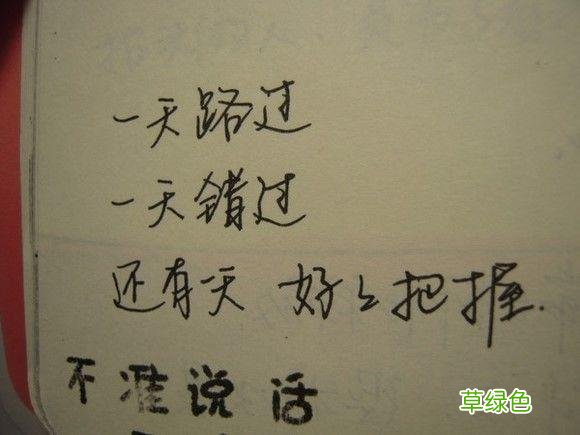 一天路过
一天错过
还有一天 好々把握.
不准说话
草绿色